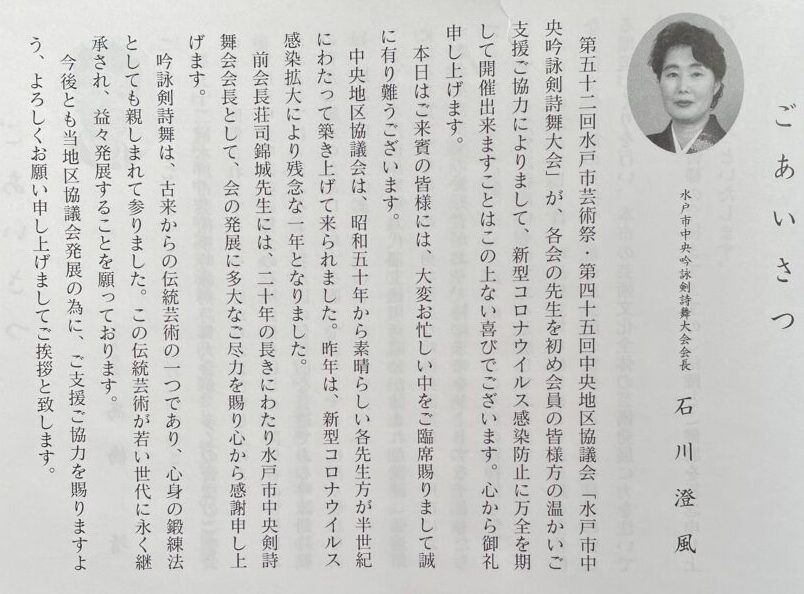 ごあいさつ
水戸市中央吟詠剣詩舞大会会長 石川澄風
第五十二回水戸市芸術祭・第四十五回中央地区協議会「水戸市中
央吟詠剣詩舞大会」が、各会の先生を初め会員の皆様方の温かいご
支援ご協力によりまして、新型コロナウイルス感染防止に万全を期
して開催出来ますことはこの上ない喜びでございます。心から御礼
申し上げます。
本日はご来賓の皆様には、大変お忙しい中をご臨席賜りまして誠
に有り難うございます。
中央地区協議会は、昭和五十年から素晴らしい各先生方が半世紀
にわたって築き上げて来られました。昨年は、新型コロナウイルス
感染拡大により残念な一年となりました。
前会長荘司錦城先生には、二十年の長きにわたり水戸市中央剣詩
舞会会長として、会の発展に多大なご尽力を賜り心から感謝申し上
げます。
吟詠剣詩舞は、古来からの伝統芸術の一つであり、心身の鍛練法
としても親しまれて参りました。この伝統芸術が若い世代に永く継
承され、益々発展することを願っております。
今後とも当地区協議会発展の為に、ご支援ご協力を賜りますよ
う、よろしくお願い申し上げましてご挨拶と致します。